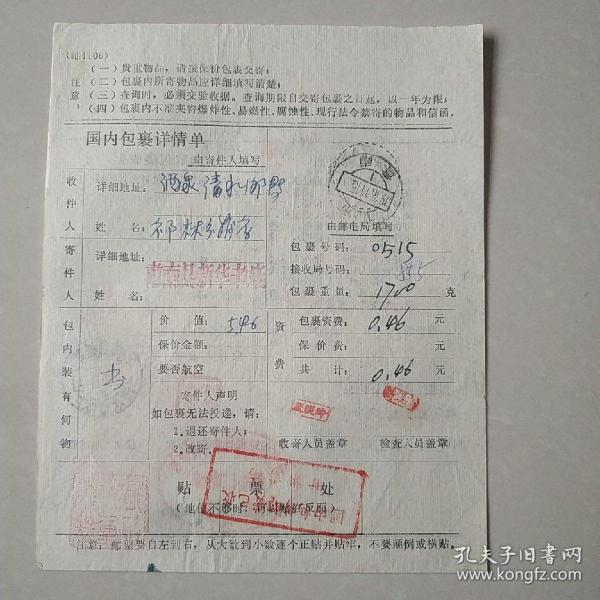 (邮1106)
注意：
(一)贵重物品，请按保价包裹交寄；
(二)包裹内所寄物品应详细填写清楚；
(三)查询时，必须交验收据。查询期限自交寄包裹之日起，以一年为限；
(四)包裹内不准夹寄爆炸性、易燃性、腐蚀性、现行法令禁寄的物品和信函。
国内包裹详情单
由寄件人填写
收件人
详细地址：酒泉清水
姓名：
寄件人
详细地址：肃南县新华书店
姓名：
由邮电局填写
包裹号码：0515
接收局号码：
包裹重量：1700 克
包内装有何物
书
价值：5.46
保价金额：
要否航空
寄件人声明
如包裹无法投递，请：
1.退还寄件人；
2.改寄。
资费
包裹资费：0.46 元
保价费： 元
共计：0.46 元
收寄人员盖章
检查人员盖章
贴票处
(地位不够时，可贴在反面)
注意：邮票要自左到右，从大数到小数逐个正贴并贴牢，不要颠倒或横贴。
孔夫子旧书网
www.kongfz.com